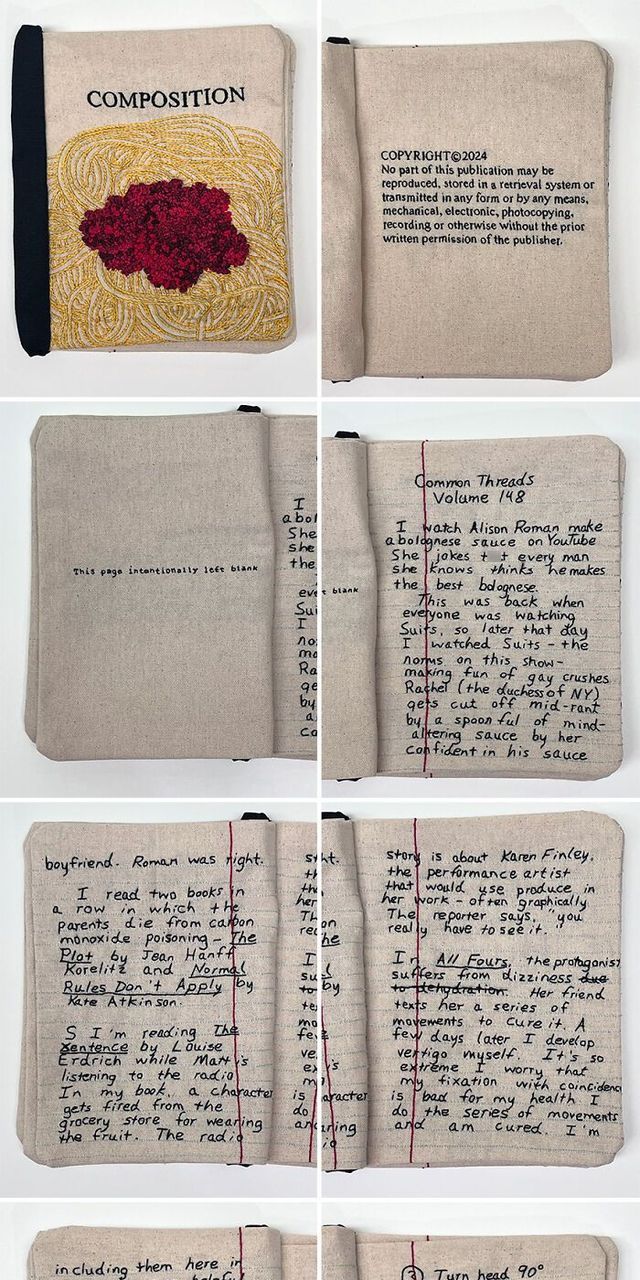 COMPOSITION
COPYRIGHT©2024
No part of this publication may be
reproduced, stored in a retrieval system or
transmitted in any form or by any means,
mechanical, electronic, photocopying,
recording or otherwise without the prior
written permission of the publisher.
This page intentionally left blank
Common Threads
Volume 148
I watch Alison Roman make
a bolognese sauce on YouTube
She jokes every man
she knows thinks he makes
the best bolognese.
This was back when
everyone was watching
Suits, so later that day
I watched Suits - the
norms on this show-
making fun of gay crushes
Rachel (the duchess of NY)
gets cut off mid-rant
by a spoonful of mind-
altering sauce by her
confident in his sauce
boyfriend. Roman was right.
I read two books in
a row in which the
parents die from carbon
monoxide poisoning - The
Plot by Jean Hanff
Korelitz and Normal
Rules Don't Apply by
Kate Atkinson.
S I'm reading The
Sentence by Louise
Erdrich while Matt is
listening to the radio
In my book, a character
gets fired from the
grocery store for wearing
the fruit. The radio
story is about Karen Finley,
the performance artist
that would use produce in
her work - often graphically
The reporter says, "you
really have to see it."
In All Fours, the protagonist
suffers from dizziness due
to dehydration. Her friend
texts her a series of
movements to cure it. A
few days later I develop
vertigo myself. It's so
extreme I worry that
my fixation with coincidenc
is bad for my health I
do the series of movements
and am cured. I'm
including them here in
helpful
③ Turn head 90°